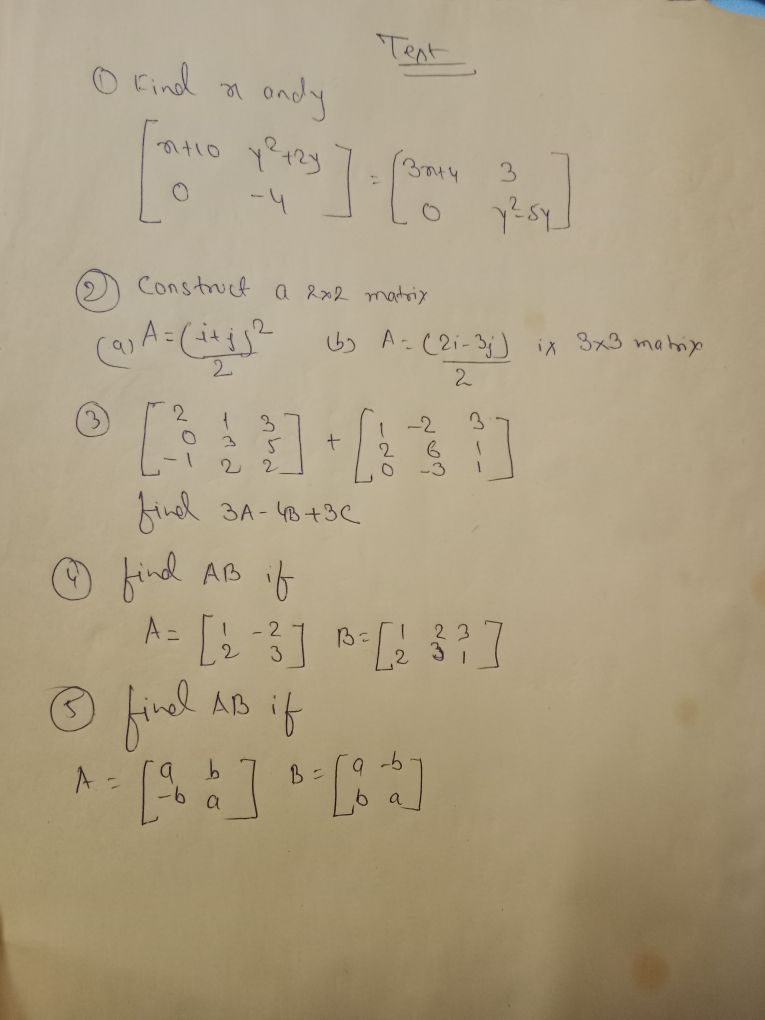 Test
① Find x and y
[x+10 y²+2y
0 -4] = [3x+4 3
0 y²-5y]
② Construct a 2x2 matrix
(a) A = (i+j)²/2 (b) A = (2i-3j)/2 ix 3x3 matrix
③ [2 1 3
0 3 5
-1 2 2] + [1 -2 3
2 6 1
0 -3 1]
find 3A-4B+3C
④ find AB if
A = [1 -2
2 3] B = [1 2 3
2 3 1]
⑤ find AB if
A = [a b
-b a] B = [a -b
b a]